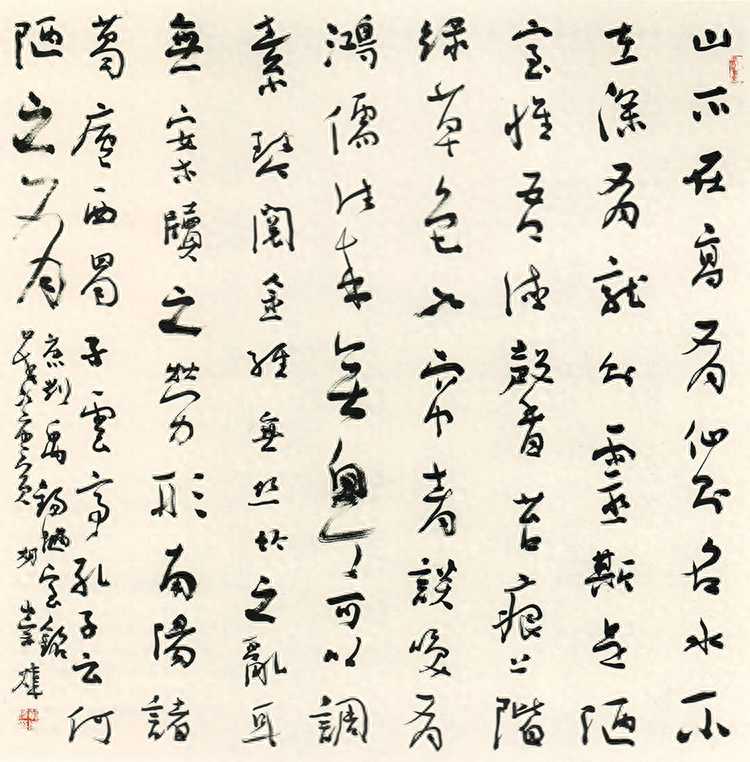 山不在高有仙則名水不
在深有龍則靈斯是陋
室惟吾德馨苔痕上階
綠草色入簾青談笑有
鴻儒往來無白丁可以調
素琴閱金經無絲竹之亂耳
無案牘之勞形南陽諸
葛廬西蜀子雲亭孔子云何
陋之有
唐劉禹錫陋室銘
胡崇雄